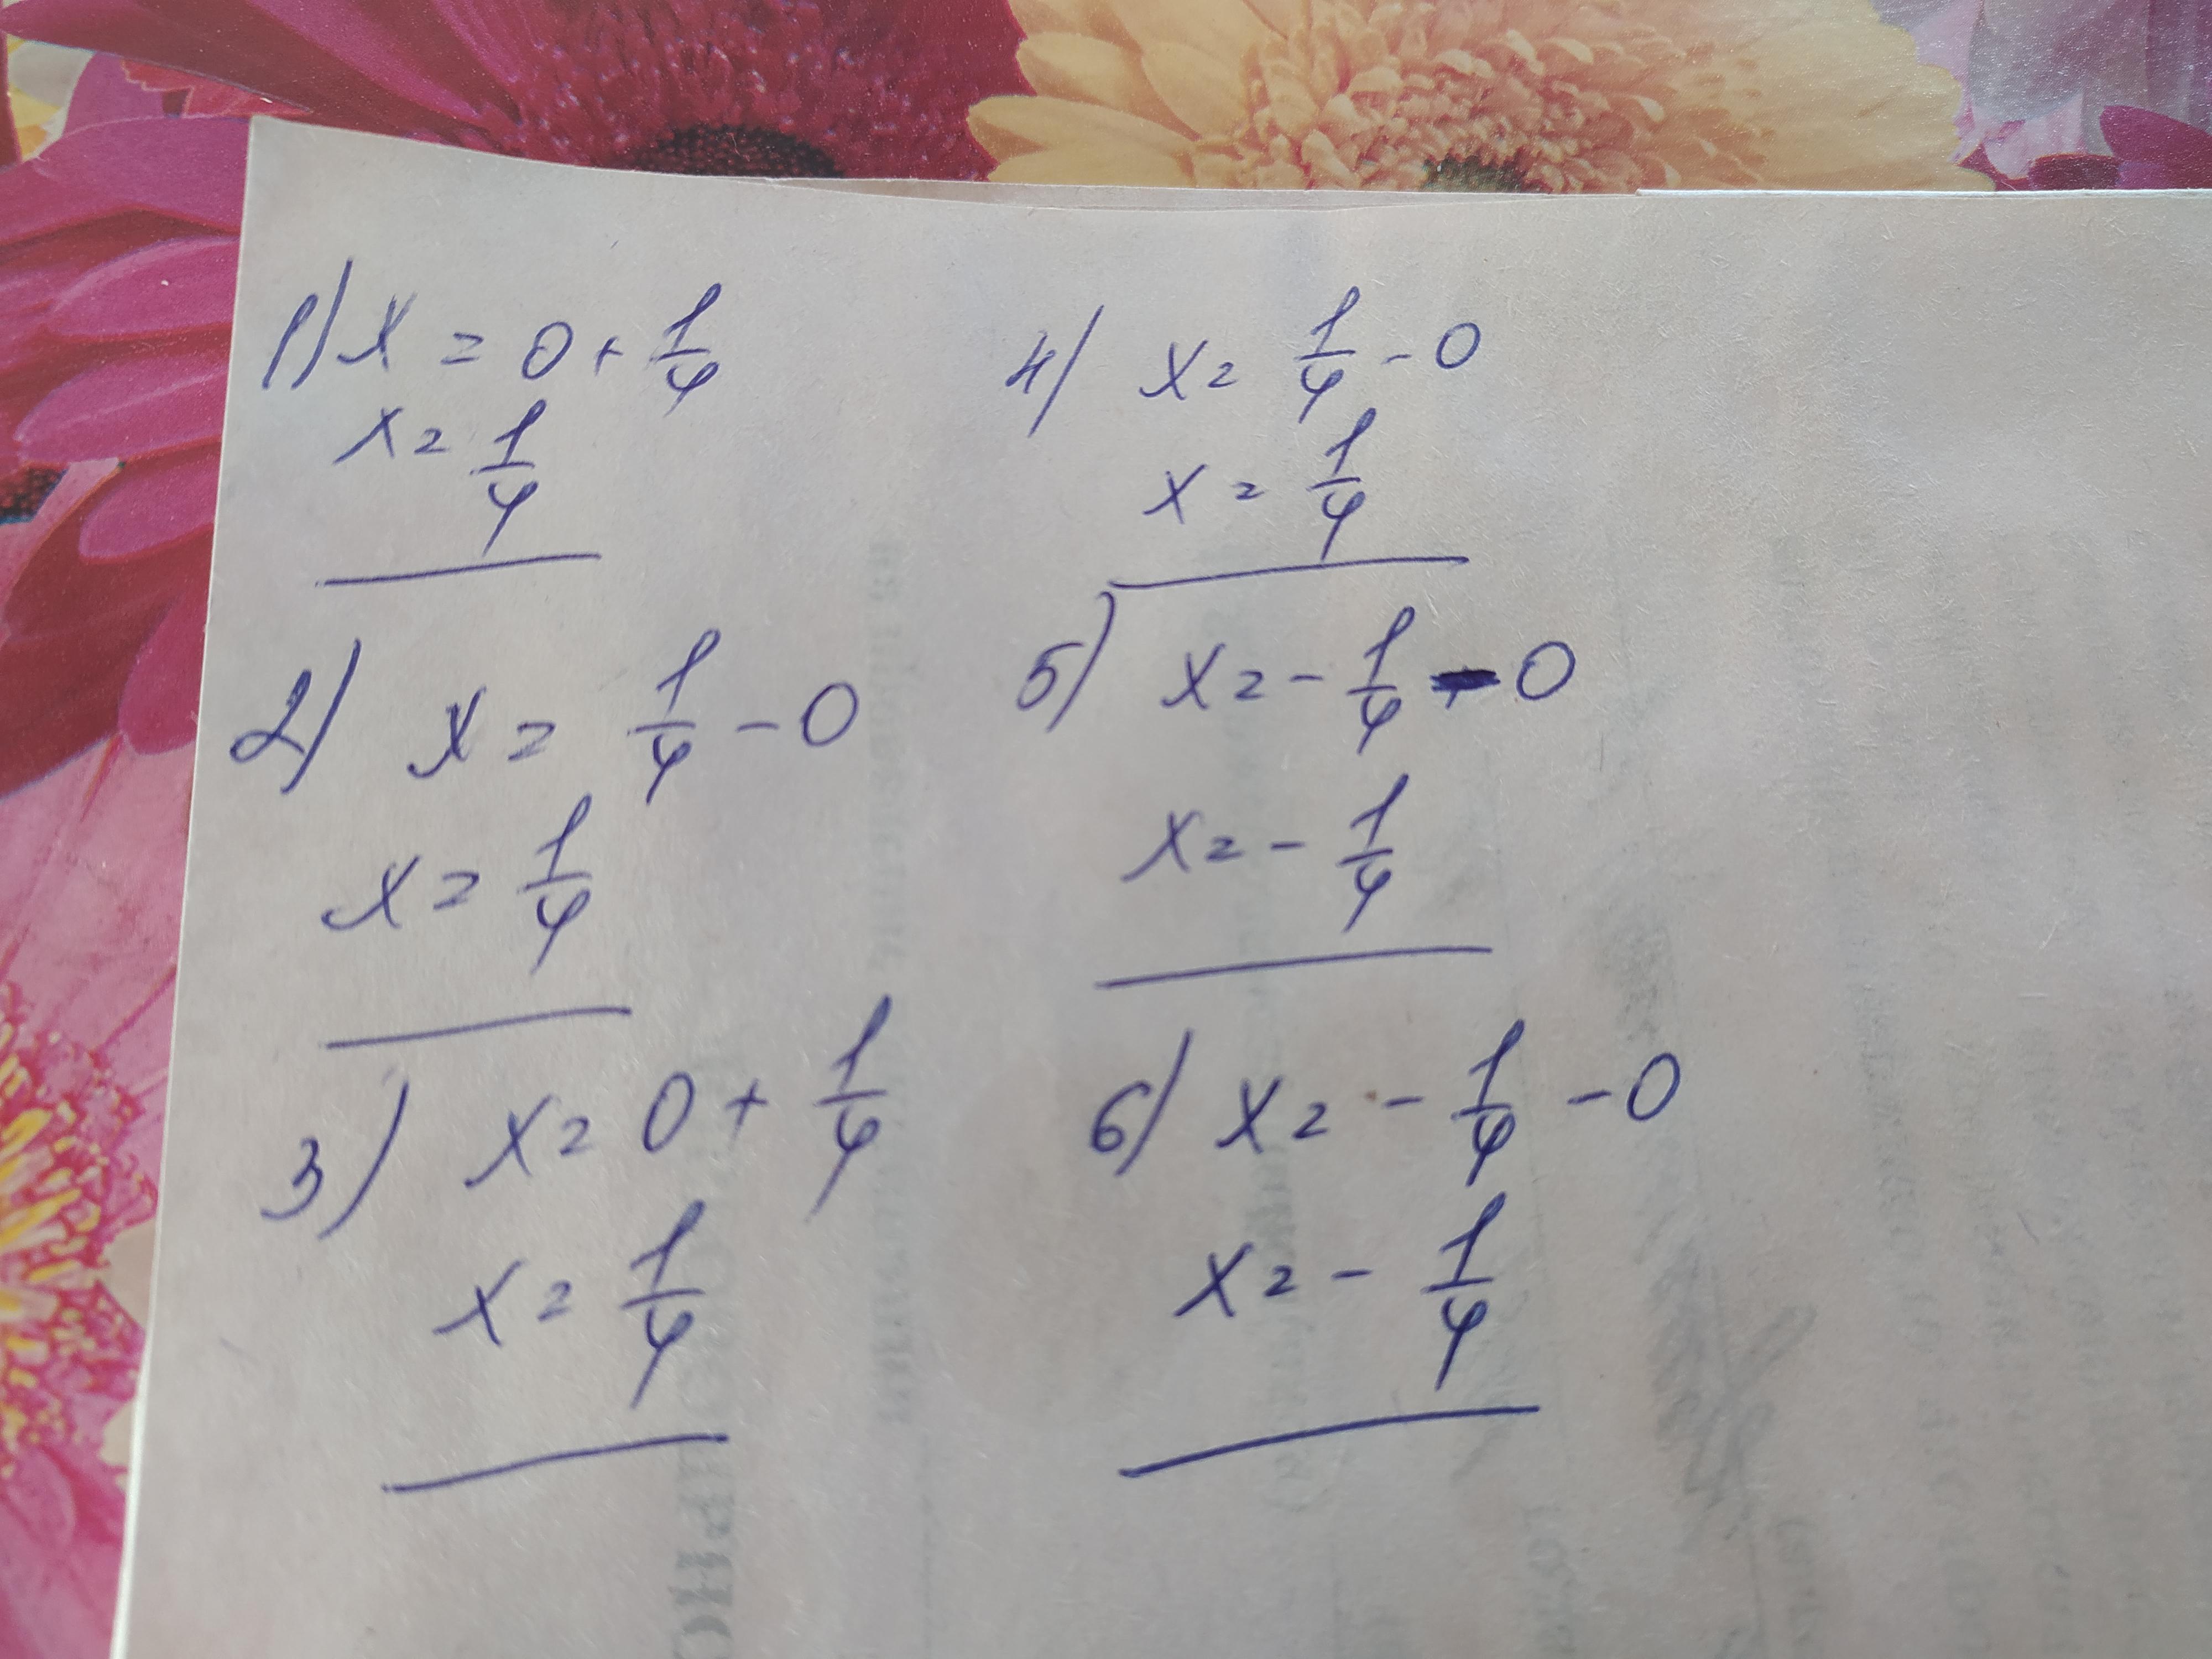 1) x = 0 + 1/4
x = 1/4
2) x = 1/4 - 0
x = 1/4
3) x = 0 + 1/4
x = 1/4
4) x = 1/4 - 0
x = 1/4
5) x = - 1/4 - 0
x = - 1/4
6) x = - 1/4 - 0
x = - 1/4